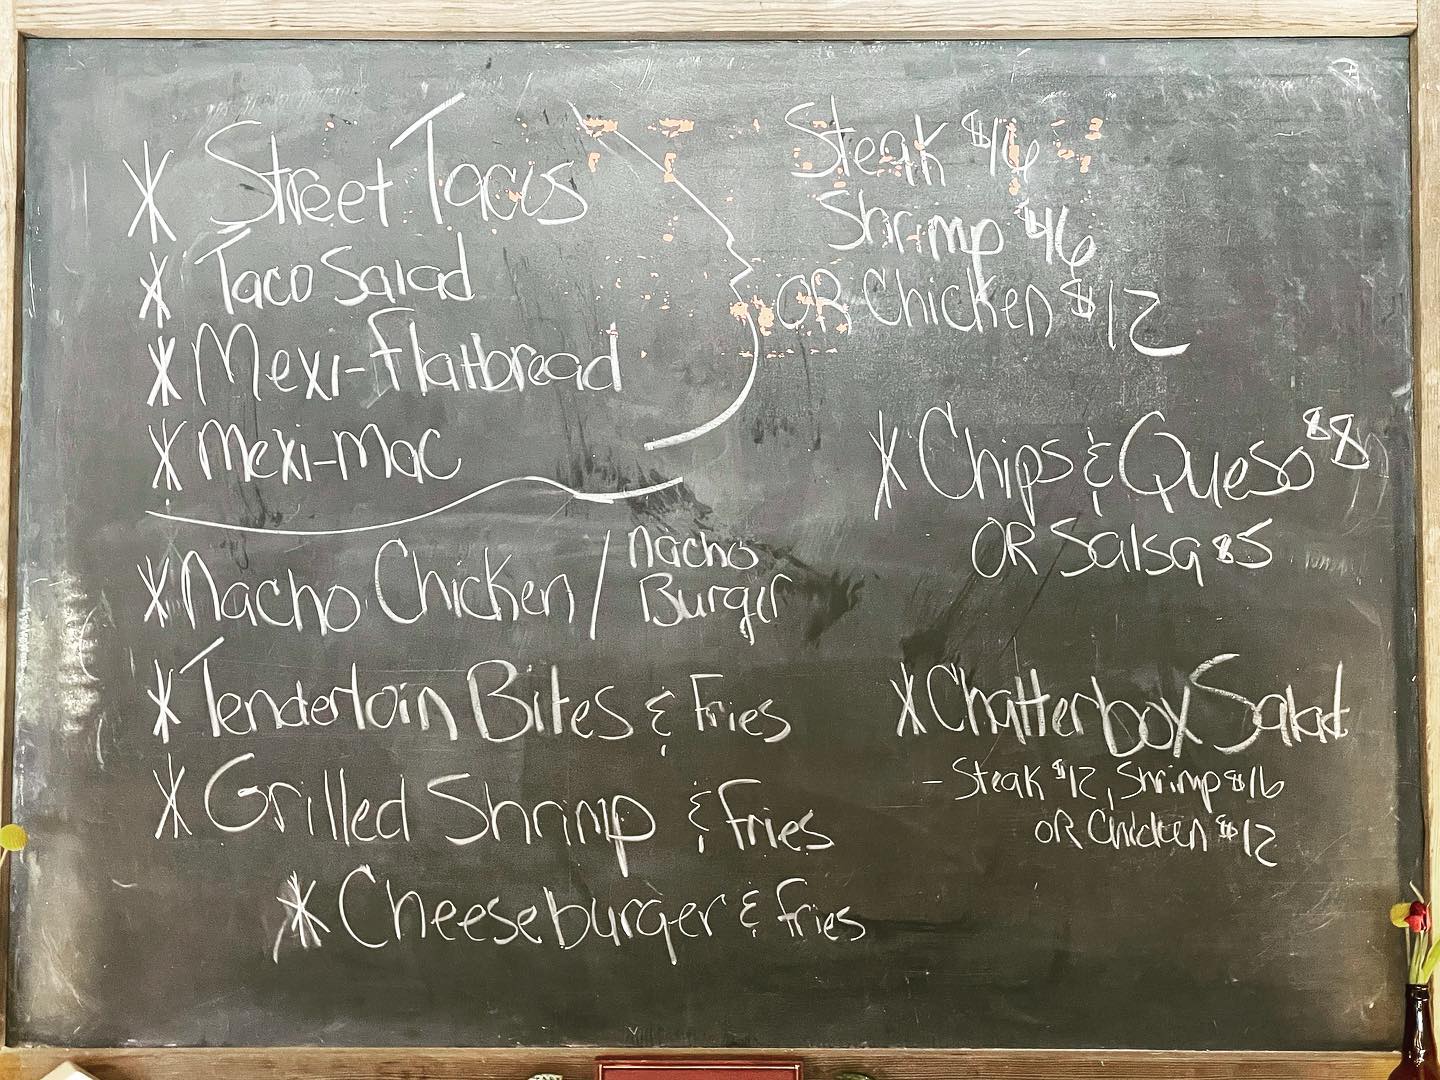 * Street Tacos
* Taco Salad
* Mexi-Flatbread
* Mexi-Mac
Steak $16
Shrimp $16
OR Chicken $12
* Chips & Queso $8
OR Salsa $5
* Nacho Chicken / Nacho
Burger
* Tenderloin Bites & Fries
* Grilled Shrimp & Fries
* Cheeseburger & Fries
* Chatterbox Salad
- Steak $12, Shrimp $16
OR Chicken $12